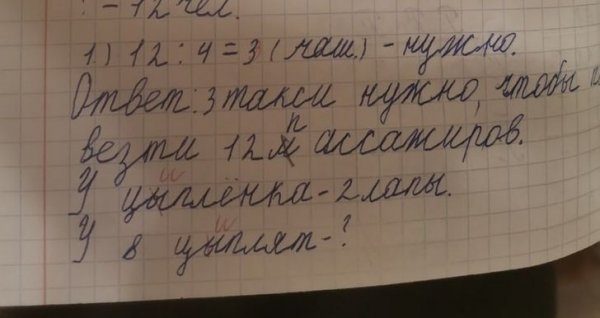 ? - 12 чел.
1.) 12 : 4 = 3 (маш.) - нужно.
Ответ: 3 такси нужно, чтобы
везти 12 пассажиров.
и
У цыплёнка - 2 лапы.
и
У 8 цыплят - ?